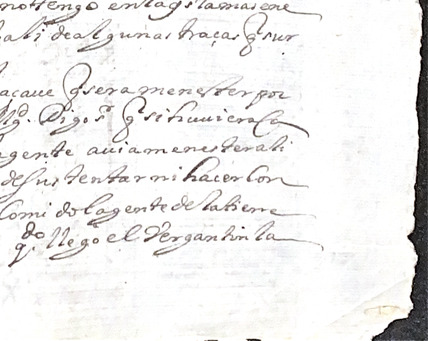 no tengo en la gslamas ene
sali de algunas traças q sur
acaue q sera menester por
Md. Digo sr q si huviera la
agente avia menester ali
de sustentar ni hacer con
comi do la gente de la tierra
qdo llego el vergantin la